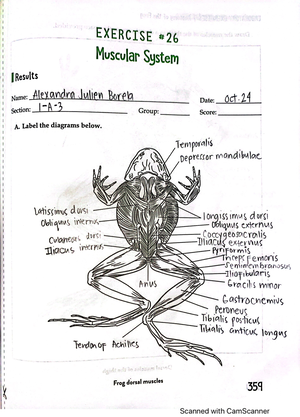 EXERCISE #26
Muscular System
Results
Name: Alexandra Julien Borela Date: Oct. 24
Section: 1-A-3 Group: Score:
A. Label the diagrams below.
Temporalis
Depressor mandibulae
Latissimus dorsi
Obliquus internus
Cutaneous dorsi
Iliacus internus
longissimus dorsi
Obliquus externus
Coccygeosacralis
Iliacus externus
Pyriformis
Triceps femoris
Semimembranosus
Iliofibularis
Gracilis minor
Anus
Gastrocnemius
Peroneus
Tibialis posticus
Tibialis anticus longus
Tendon of Achilles
Frog dorsal muscles
359
Scanned with CamScanner